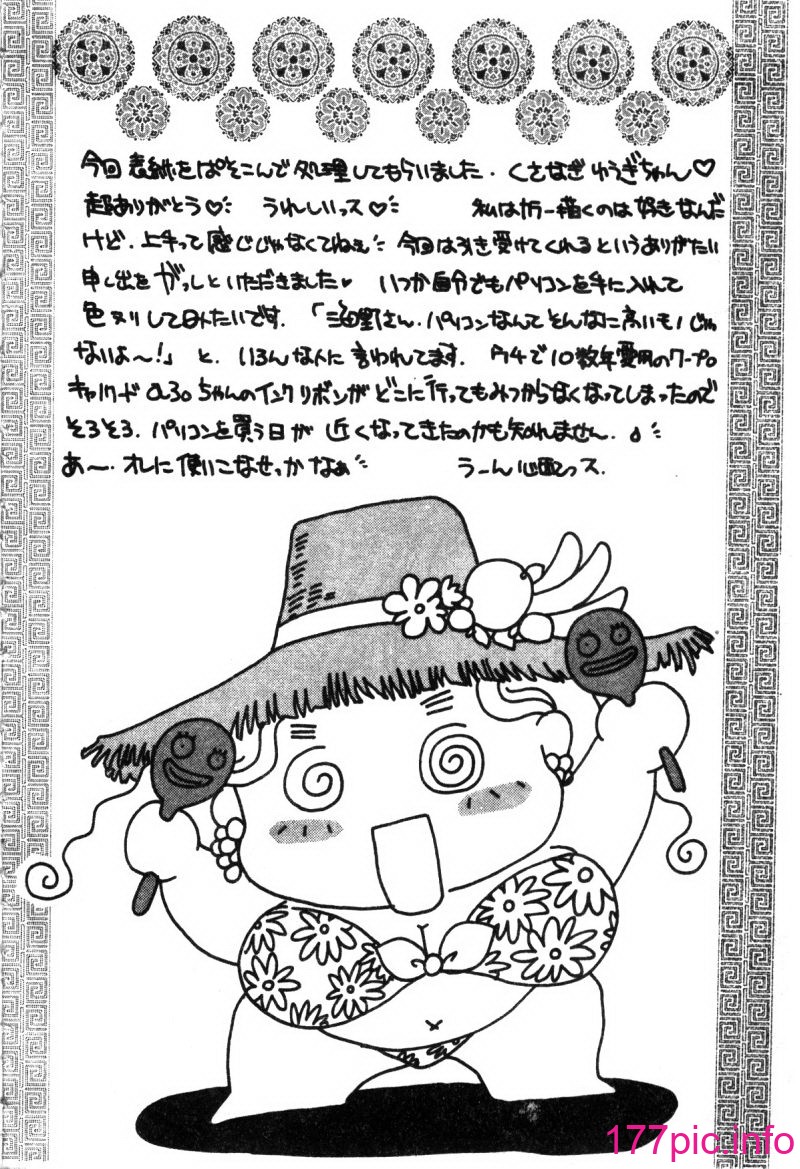 今回表紙をぱそこんで処理してもらいました. くさなぎゆうぎちゃん♡
超ありがとう♡ うれしいっス♡ 私はカラー描くのは好きなんだ
けど. 上手って感じじゃなくてねぇ 今回は引き受けてくれるというありがたい
申し出をがっしといただきました♥ いつか自分でもパソコンを手に入れて
色ヌリしてみたいです. 「海野さん. パソコンなんてそんなに高いもんじゃ
ないよ〜!」と. いろんな人に言われてます. ウチで10数年愛用のワープロ
キャノワード α30ちゃんのインクリボンがどこに行ってもみつからなくなってしまったので
そろそろ. パソコンを買う日が近くなってきたのかも知れません. ♪
あ〜. オレに使いこなせっかなぁ うーん心配っス.
177pic.info